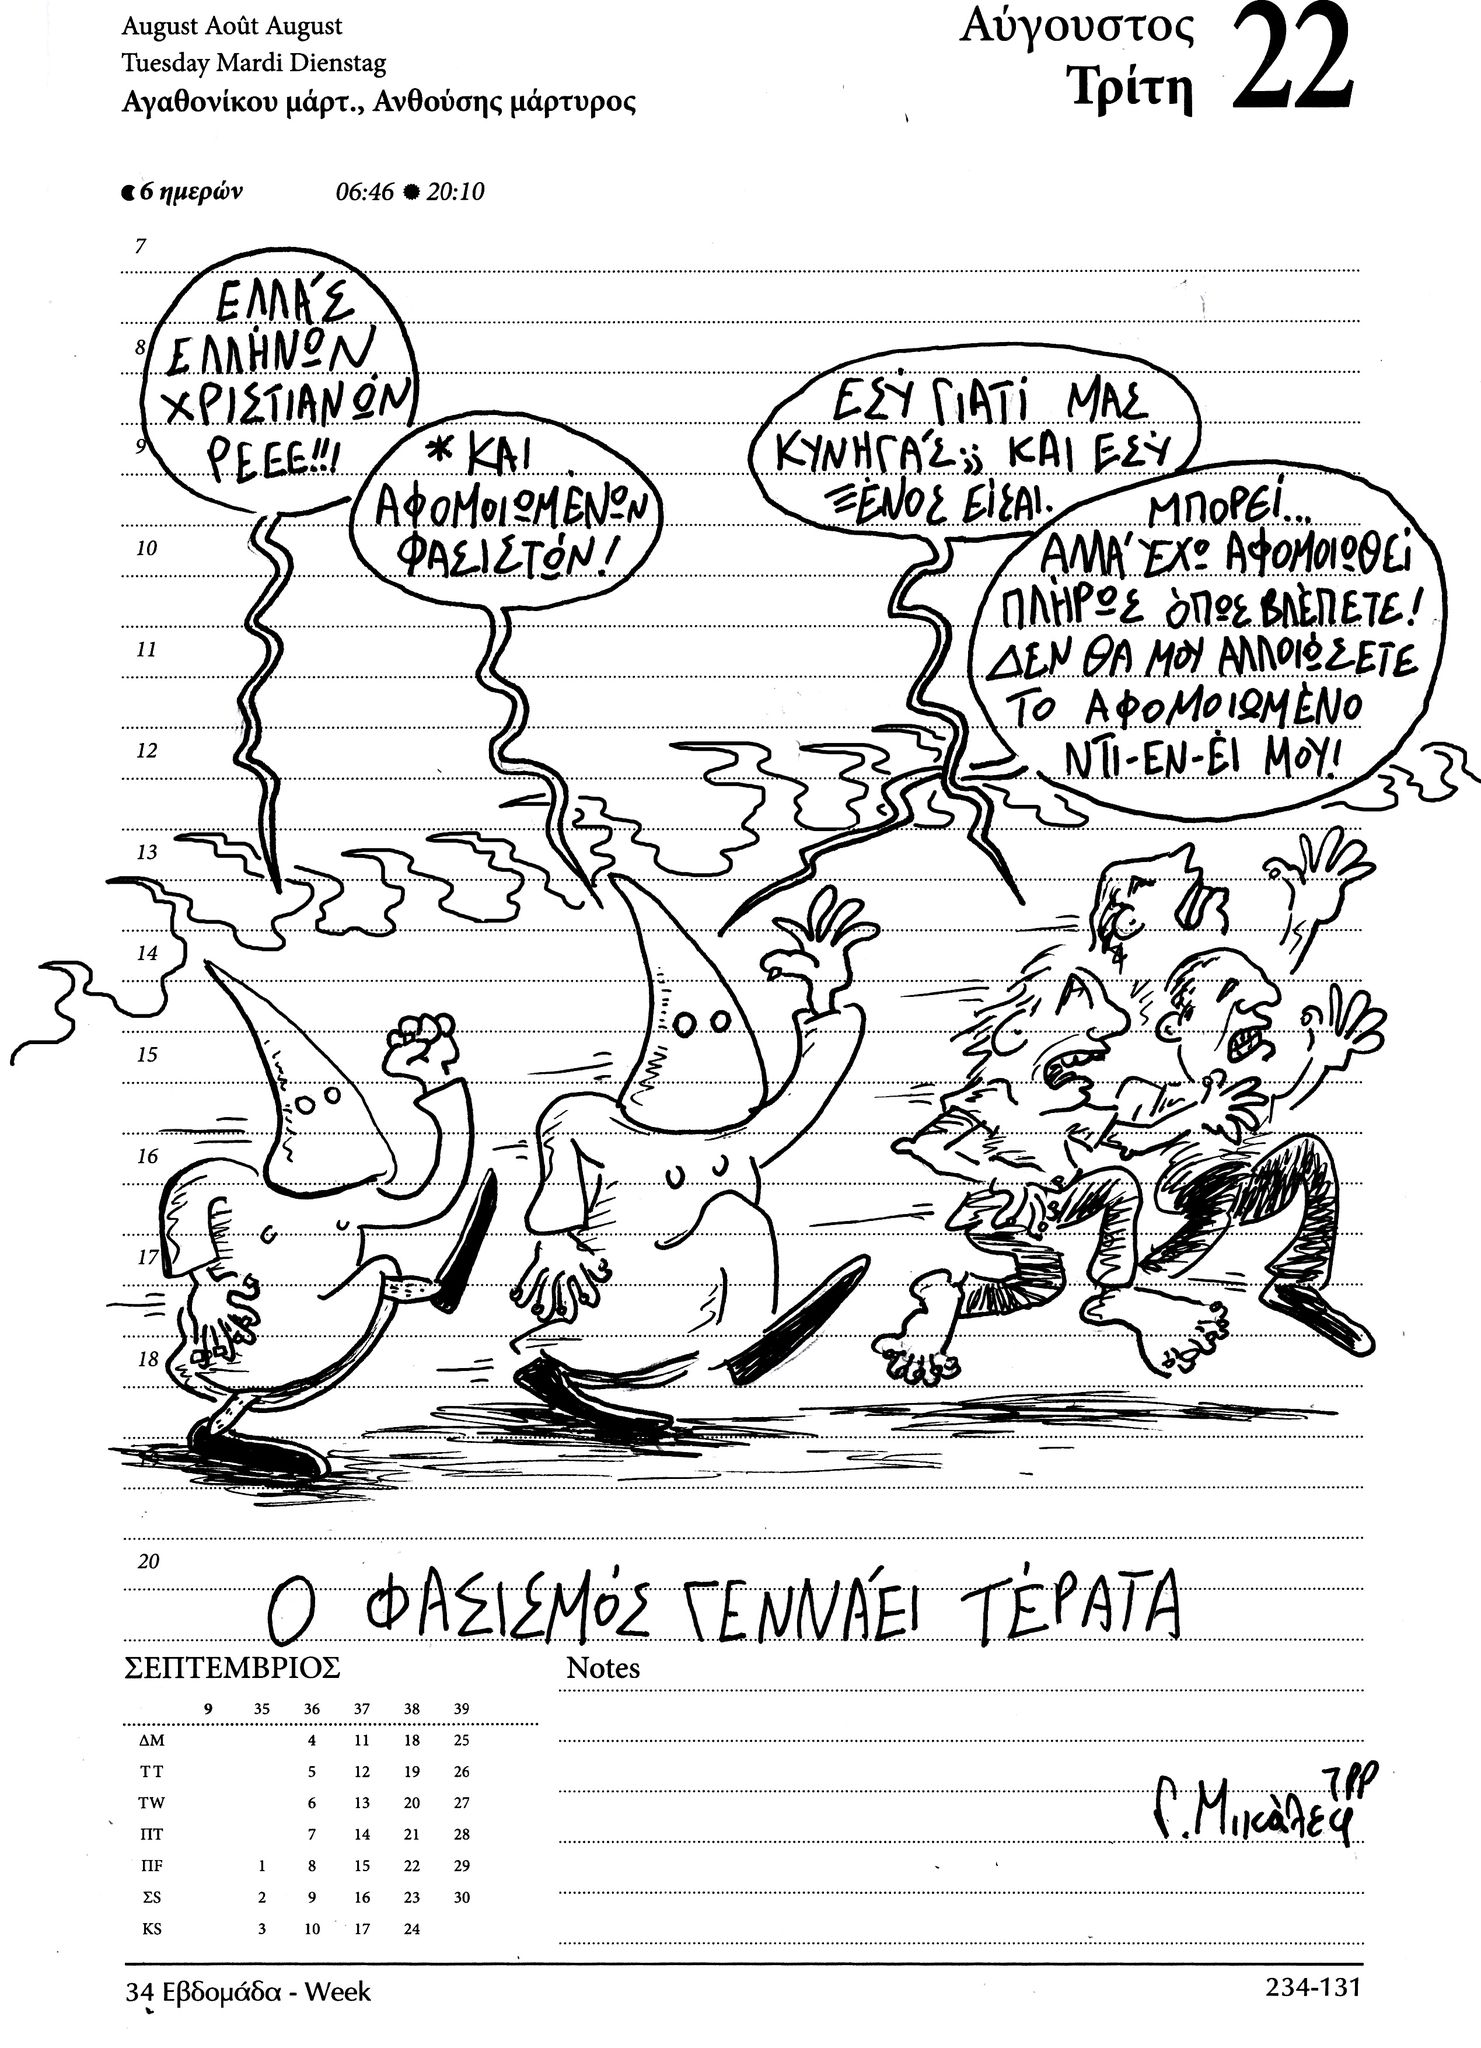 August Août August
Tuesday Mardi Dienstag
Αγαθονίκου μάρτ., Ανθούσης μάρτυρος
Αύγουστος
Τρίτη
22
6 ημερών 06:46 20:10
7
8
9
10
11
12
13
14
15
16
17
18
19
20
ΕΛΛΆΣ
ΕΛΛΉΝΩΝ
ΧΡΙΣΤΙΑΝΏΝ
ΡΕΕΕ!!!
*ΚΑΙ
ΑΦΟΜΟΙΩΜΈΝΩΝ
ΦΑΣΙΣΤΏΝ!
ΕΣΎ ΓΙΑΤΊ ΜΑΣ
ΚΥΝΗΓΆΣ;; ΚΑΙ ΕΣΎ
ΞΈΝΟΣ ΕΊΣΑΙ.
ΜΠΟΡΕΊ...
ΑΛΛΆ ΈΧΩ ΑΦΟΜΟΙΩΘΕΊ
ΠΛΉΡΩΣ ΌΠΩΣ ΒΛΈΠΕΤΕ!
ΔΕΝ ΘΑ ΜΟΥ ΑΛΛΟΙΏΣΕΤΕ
ΤΟ ΑΦΟΜΟΙΩΜΈΝΟ
ΝΤΙ-ΕΝ-ΈΙ ΜΟΥ!
Ο ΦΑΣΙΣΜΌΣ ΓΕΝΝΆΕΙ ΤΈΡΑΤΑ
ΣΕΠΤΕΜΒΡΙΟΣ
9 35 36 37 38 39
ΔΜ 4 11 18 25
ΤΤ 5 12 19 26
ΤW 6 13 20 27
ΠΤ 7 14 21 28
ΠF 1 8 15 22 29
ΣS 2 9 16 23 30
KS 3 10 17 24
Notes
Γ. Μικάλεφ
34 Εβδομάδα - Week
234-131